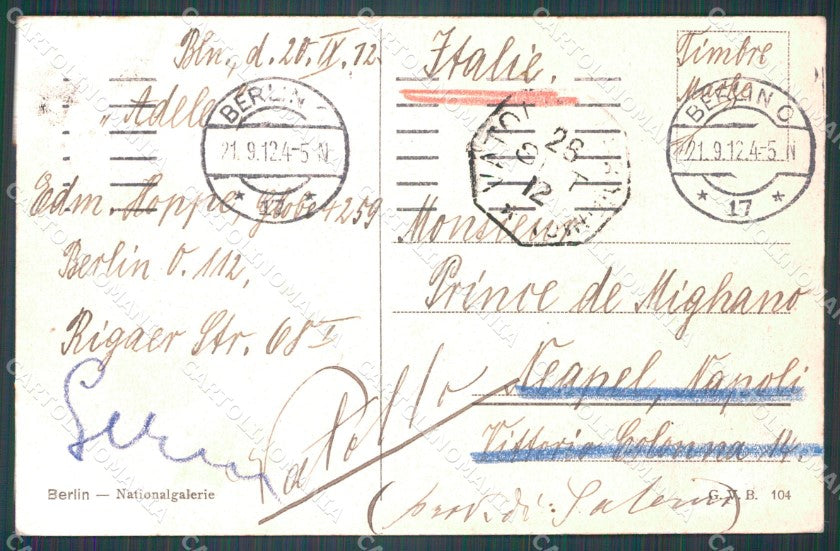 Bln., d. 20. IX. 12.
"Adele
Edm. Hoppe Globe 4259
Berlin O. 112,
Rigaer Str. 68 I
Berlin — Nationalgalerie
Italie.
Timbre
Marke
BERLIN O
21.9.12.4-5 N
* 17 *
28
9
12
BERLIN O
21.9.12.4-5 N
* 17 *
Monsieur
Prince de Mighano
Neapel, Napoli
Vittoria Colonna 14.
Vatolla
(prov. di: Salerno)
G. V. B. 104
CARTOLINOMANIA